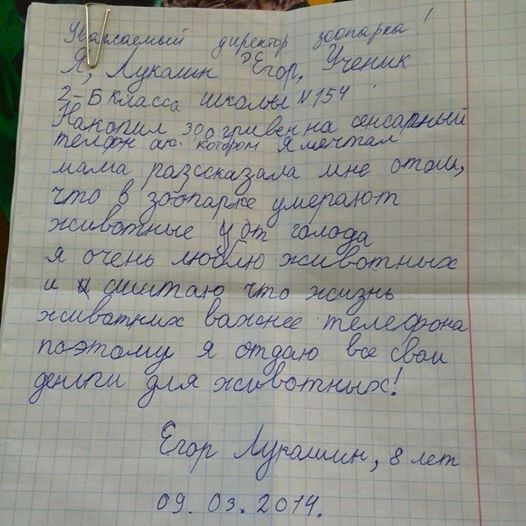 Уважаемый директор зоопарка!
Я, Лукашин Егор, Ученик
2-Б класса школы №154
Накопил 300 гривен на сенсарный
телфон о котором я мечтал
мама разссказала мне отом,
что в зоопарке умерают
животные от голода
я очень люблю животных
и считаю что жизнь
животних важнее телефона
поэтому я отдаю все свои
деньги для животных!
Егор Лукашин, 8 лет
09.03.2014.